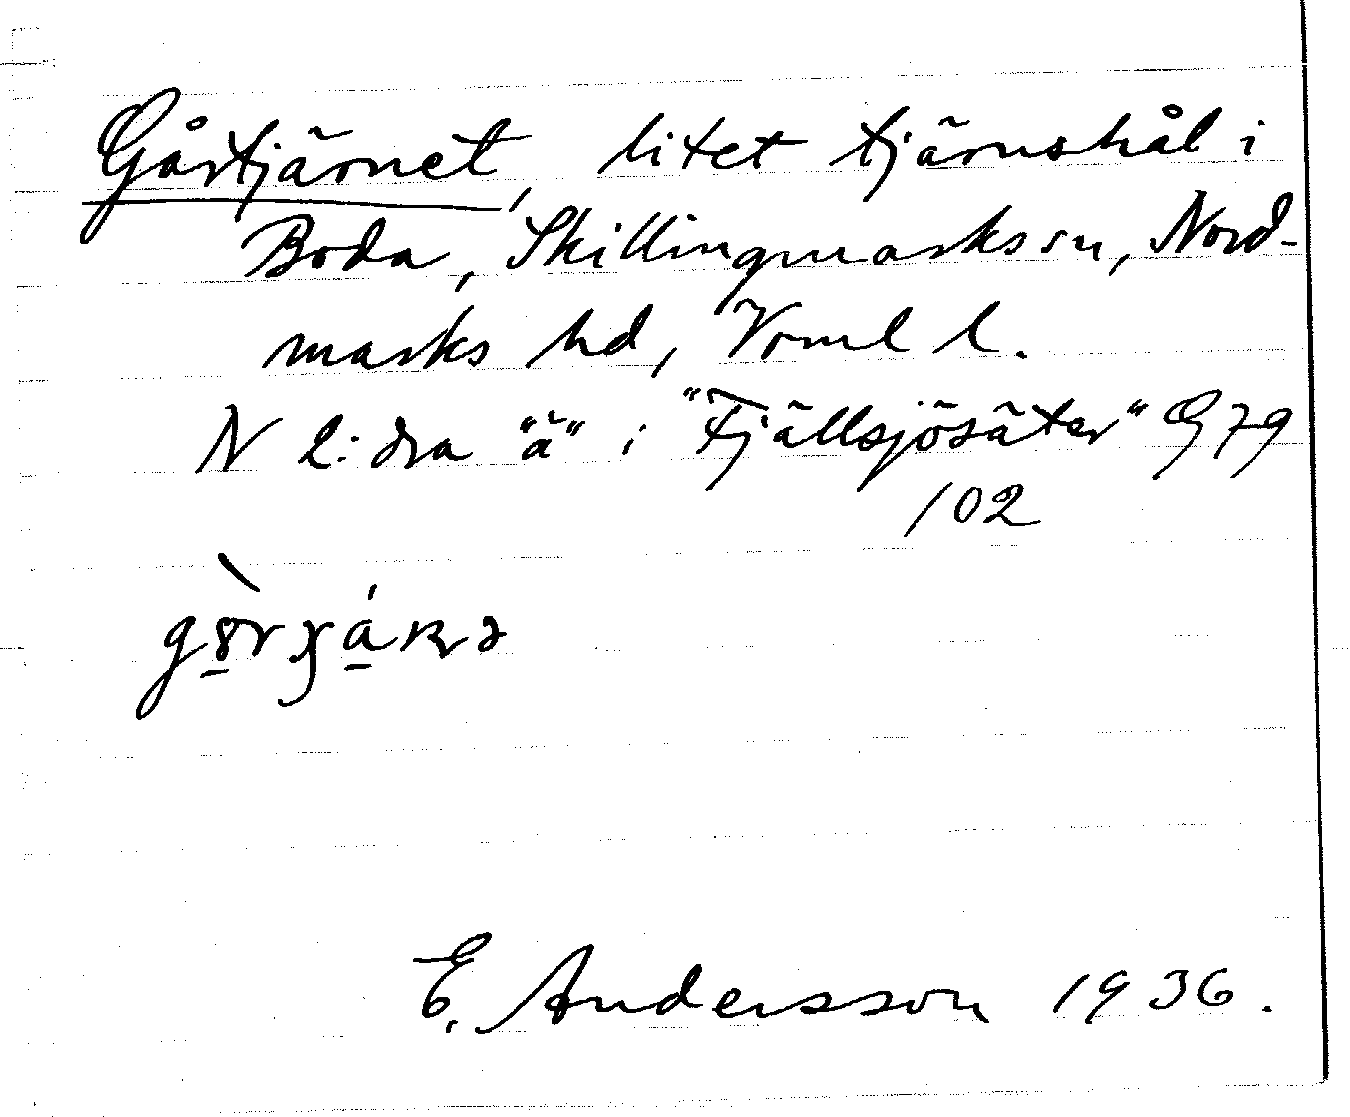 Gårtjärnet, litet tjärnshål i
Boda, Skillingmarks sn, Nord-
marks hd, Vrml l.
N l: dra "ä" i "Fjällsjösäter" G 79
102
E. Andersson 1936.